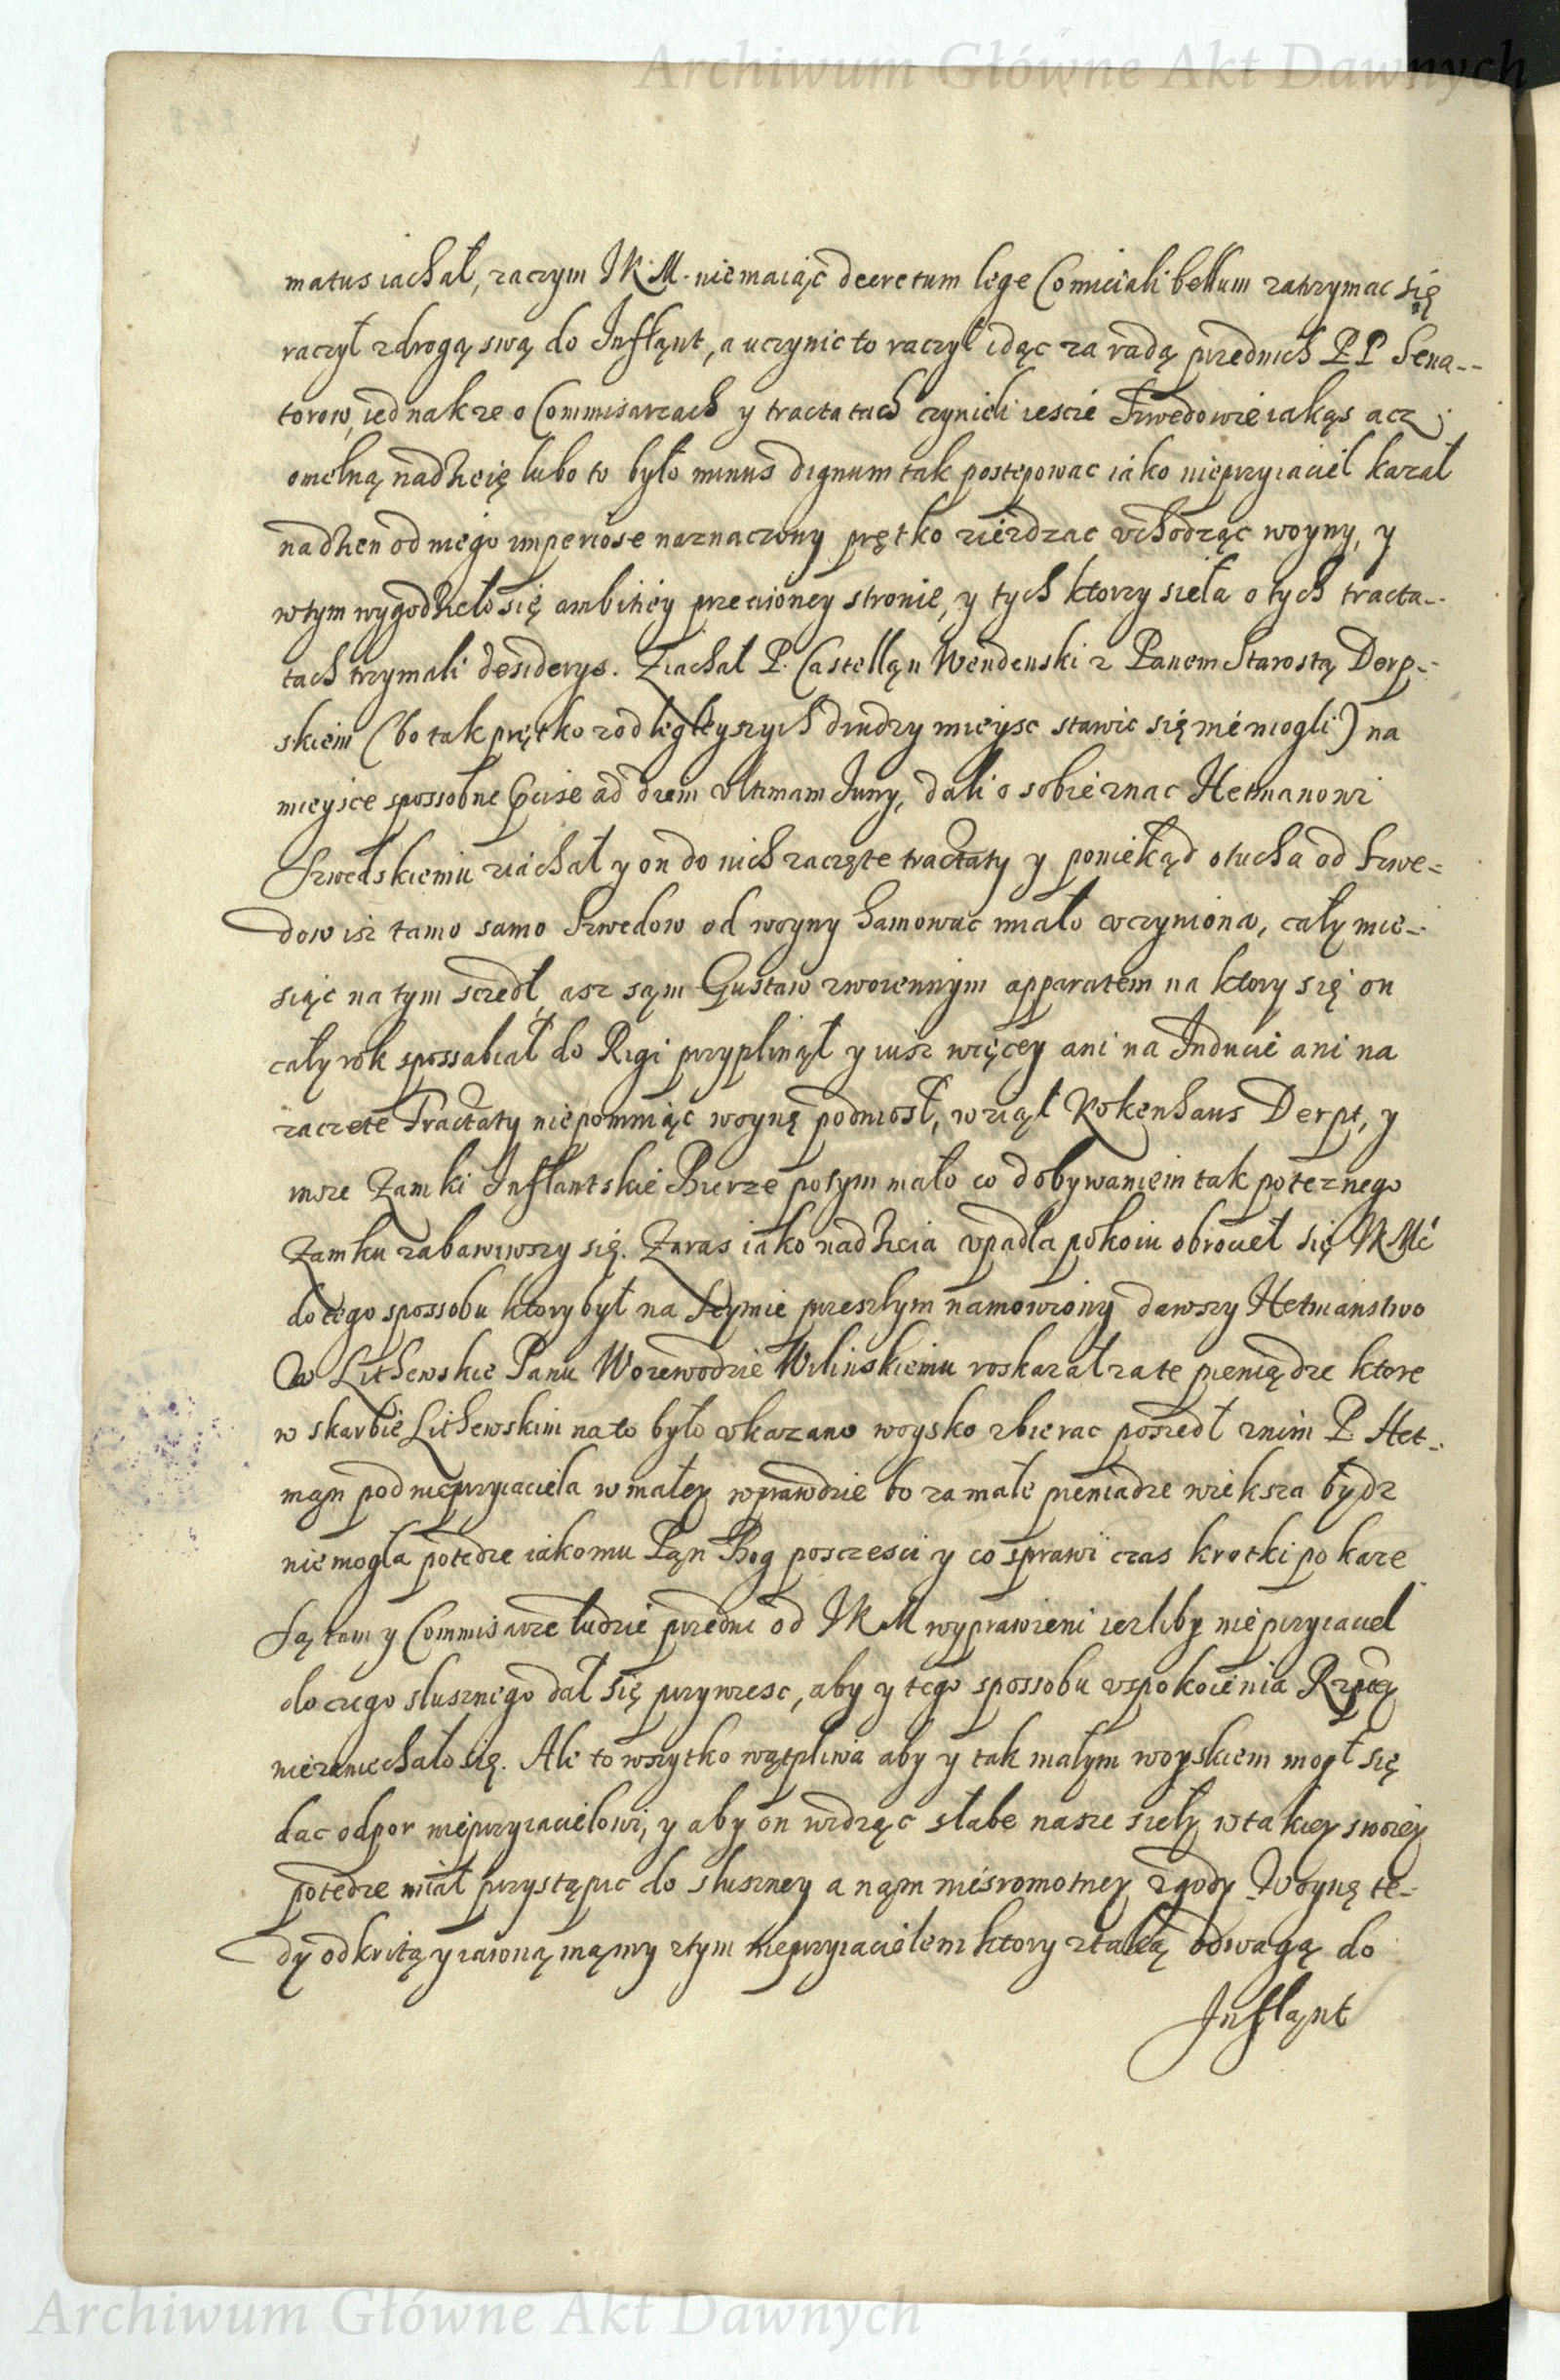 Archiwum Główne Akt Dawnych
matus iachał, zaczym JK.M. niemaiąc decretum lege Comiciali bellum zatrzymac się
raczył zdrogą swą do Infląnt, a uczynic to raczył idąc za radą przednich PP Sena-
torow, iednakze o Commisarzach y tractatach czynieli iescie Szwedowie iakąs acz
omelną nadzieię lubo to było minus dignum tak postepowac iako nieprzyiaciel kazał
nadzien od niego imperiose naznaczony prętko ziezdzac vchodząc woyny, y
wtym wygodzieło się ambitiey przeciwney stronie, y tych ktorzy sieła o tych tracta-
tach trzymali desiderys. Ziachał P. Castelląn Wendenski z Panem Starostą Derp-
skiem (bo tak prętko zodlegleyszych drudzy mieysc stawic się niemogli) na
mieysce spossobne ad diem vltimam Juny, dali o sobie znac Hetmanowi
Szwedskiemu ziachał y on do nich zaczęte tractaty y poniekąd otucha od Szwe-
dow isz tamo samo Szwedow od woyny hamowac miało vczyniona, cały mie-
siąc na tym szedł, asz sąm Gustaw zwoiennym apparatem na ktory się on
cały rok spossabiał do Rigi przyplinął y iusz więcey ani na Inducie ani na
zaczete Tractaty niepomniąc woynę podniosł, wziął Kokenhaus Derpt, y
insze Zamki Inflantskie Bierze potym mało co dobywaniem tak poteznego
Zamku zabawiwszy się. Zaras iako nadzieia vpadła pokoiu obrocieł się JKMć
do tego spossobu ktory był na Seymie przeszłym namowiony dawszy Hetmanstwo
W Lithewskie Panu Woiewodzie Wilinskiemu roskazał za te pieniądze ktore
w skarbie Lithewskim na to było vkazano woysko zbierac poszedł znim P. Het-
mąn pod nieprzyiaciela w małey wprawdzie bo za małe pieniadze wieksza bydz
niemogła potedze iakomu Pąn Bog posczesci y co sprawi czas krotki pokaze
Są tam y Commisarze ludzie przedni od JKM wyprawieni iezliby nieprzyiaciel
do czego slusznego dał się przywiesc, aby y tego spossobu vspokoienia Rzptey
niezaniechało się. Ale to wszytko wątpliwa aby y tak małym woyskiem mogł się
dac odpor nieprzyiacielowi, y aby on widząc słabe nasze sieły w takiey swoiey
potedze miał przystąpic do sluszney a nąm niesromotney zgody. Woynę te-
dy odkritą y iawną mąmy ztym nieprzyiacielem ktory ztaką odwagą do
Infląnt
Archiwum Główne Akt Dawnych